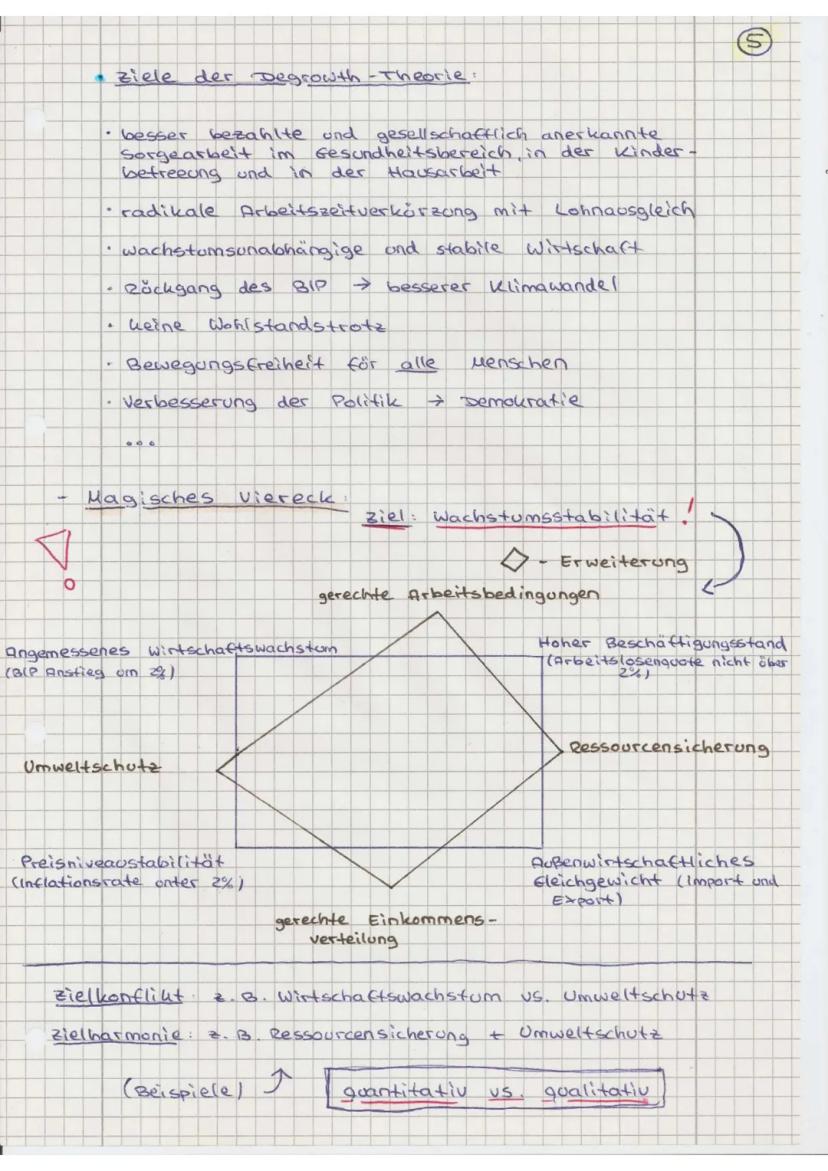 5
• Ziele der Degrowth-Theorie:
· besser bezahlte und gesellschaftlich anerkannte
Sorgearbeit im Gesundheitsbereich, in der Kinder-
betreeung und in der Hausarbeit
· radikale Arbeitszeitverkürzung mit Lohnausgleich
· wachstumsunabhängige und stabile Wirtschaft
· Rückgang des BIP → besserer Klimawandel
· keine Wohlstandstrotz
· Bewegungsfreiheit für alle Menschen
· Verbesserung der Politik → Demokratie
...
- Magisches Viereck:
Ziel: Wachstumsstabilität!
◇ - Erweiterung
gerechte Arbeitsbedingungen
Angemessenes Wirtschaftswachstum
(BIP Anstieg um 2%)
Hoher Beschäftigungsstand
(Arbeitslosenquote nicht über
2%)
Umweltschutz
Ressourcensicherung
Preisniveaustabilität
(Inflationsrate unter 2%)
Außenwirtschaftliches
Gleichgewicht (Import und
Export)
gerechte Einkommens-
verteilung
Zielkonflikt: z. B. Wirtschaftswachstum vs. Umweltschutz
Zielharmonie: z. B. Ressourcensicherung + Umweltschutz
(Beispiele) ↑
quantitativ vs. qualitativ